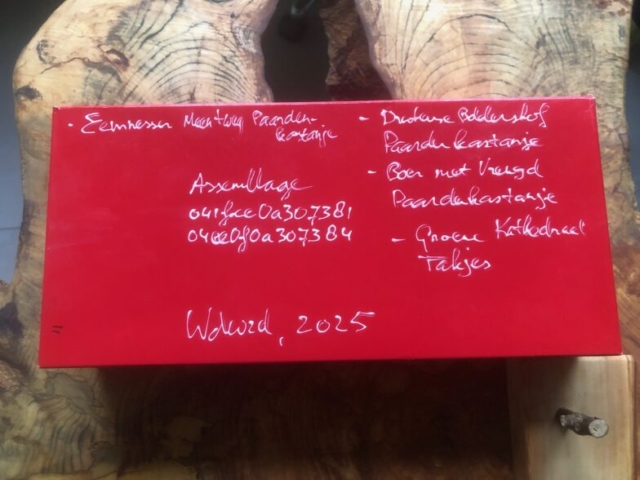 - Eemnesser Meentweg Paarden-
kastanje
Assemblage
041fce0a307381
04ee0f0a307384
- Drutense Boldershof
Paardenkastanje
- Boer met Vreugd
Paardenkastanje
- Groene Kathedraal
Takjes
, 2025